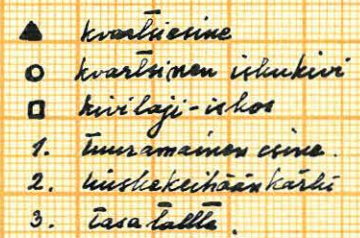 kvartsiesine
kvartsinen iskukivi
kivilaji-iskos
1. tuuramainen esine.
2. liuskekeihäänkärki
3. tasataltta.